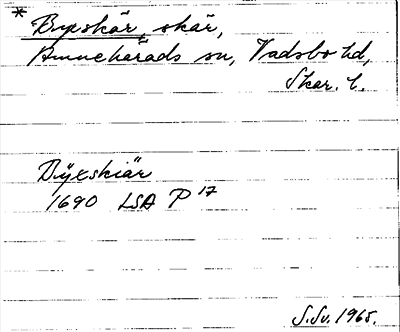 * Byxskär, skär,
Amnehärads sn, Vadsbo hd,
Skar. l.
Dÿxskiär
1690 LSA P 17
S.Sv. 1965.